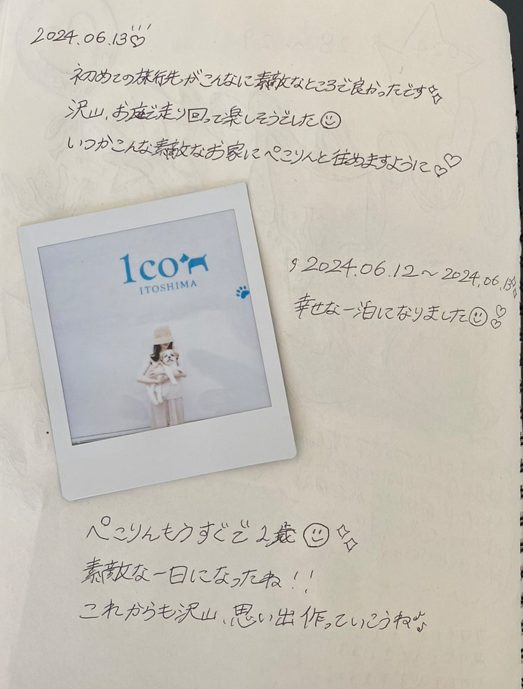 2024.06.13♡
初めての旅行先がこんなに素敵なところで良かったです
沢山、お庭で走り回って楽しそうでした☺
いつかこんな素敵なお家にぺこりんと住めますように♡
1co
ITOSHIMA
2024.06.12～2024.06.13
幸せな一泊になりました☺♡
ぺこりんもうすぐで2歳☺
素敵な一日になったね!!
これからも沢山、思い出作っていこうね♪